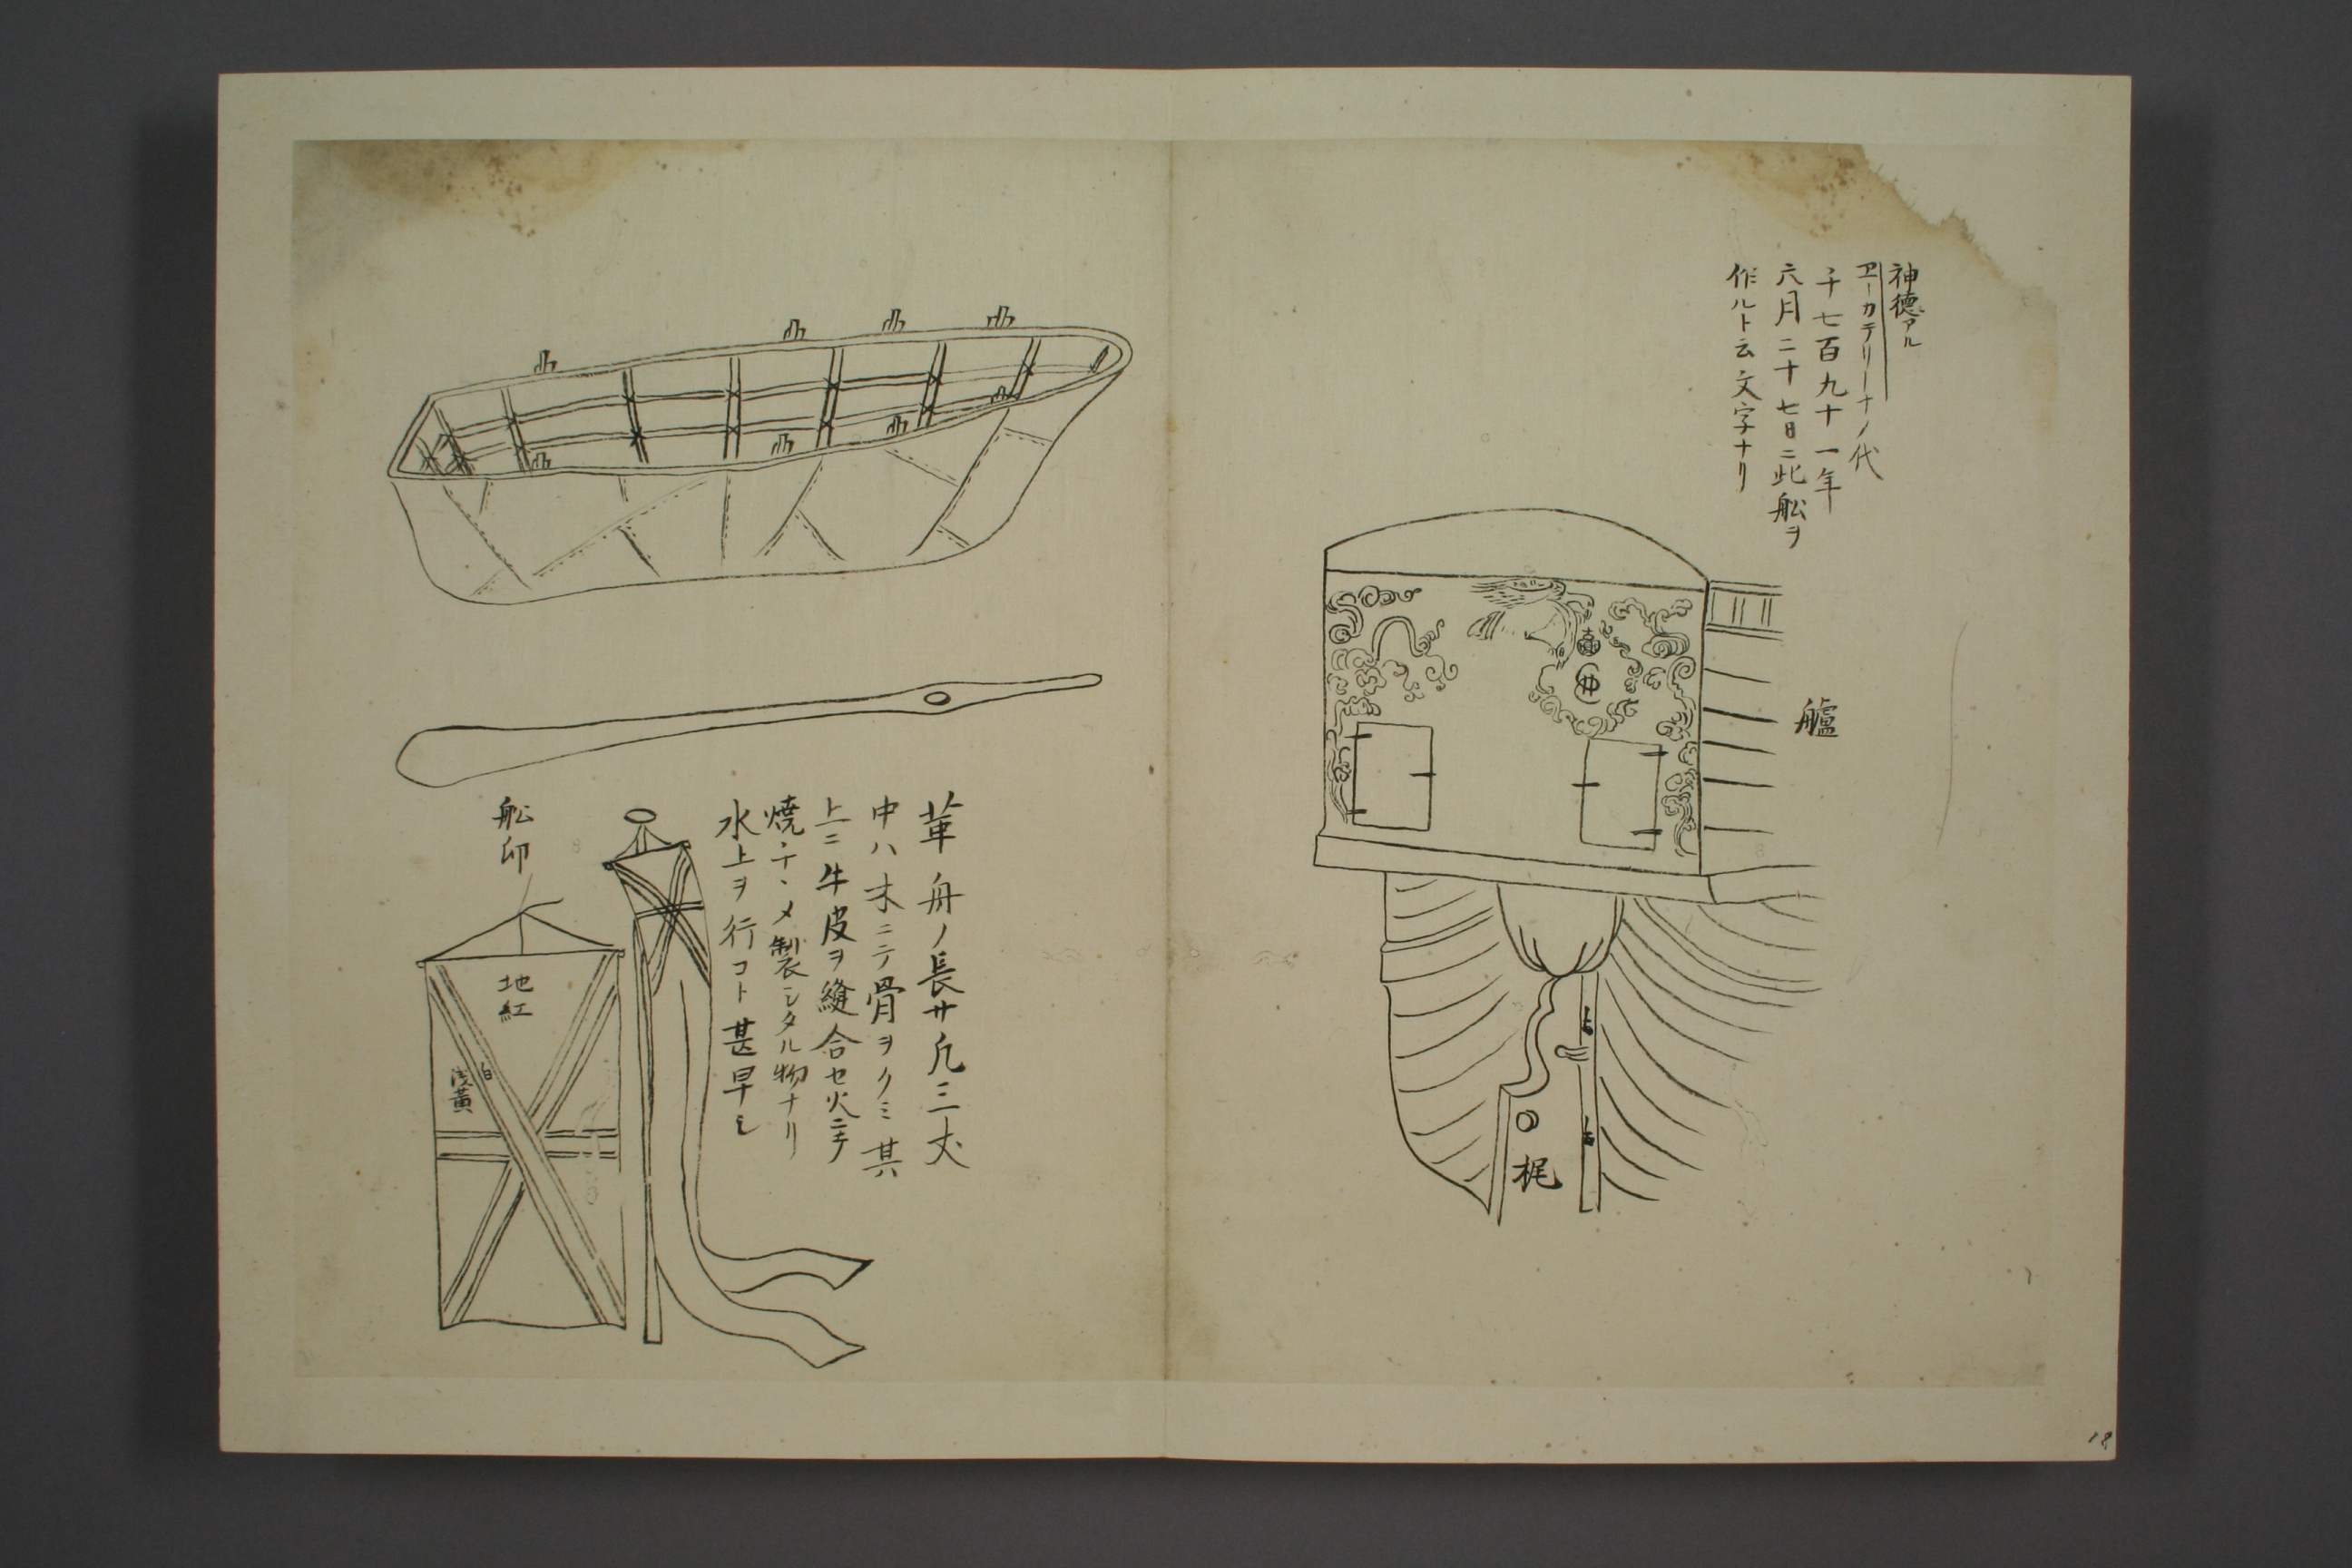 神徳アル
ヱーカテリーナノ代
千七百九十一年
六月二十七日ニ此舩ヲ
作ルト云文字ナリ
艫
梶
革舟ノ長サ凡三丈
中ハ木ニテ骨ヲクミ其
上ニ牛皮ヲ縫合セ火ニテ
焼チヽメ製シタル物ナリ
水上ヲ行コト甚早シ
舩印
地紅
白
浅黄
18